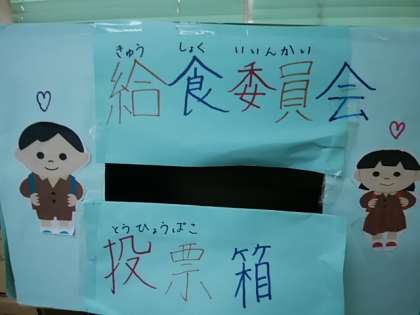 きゅう しょく いいんかい
給食委員会
とうひょうばこ
投票箱